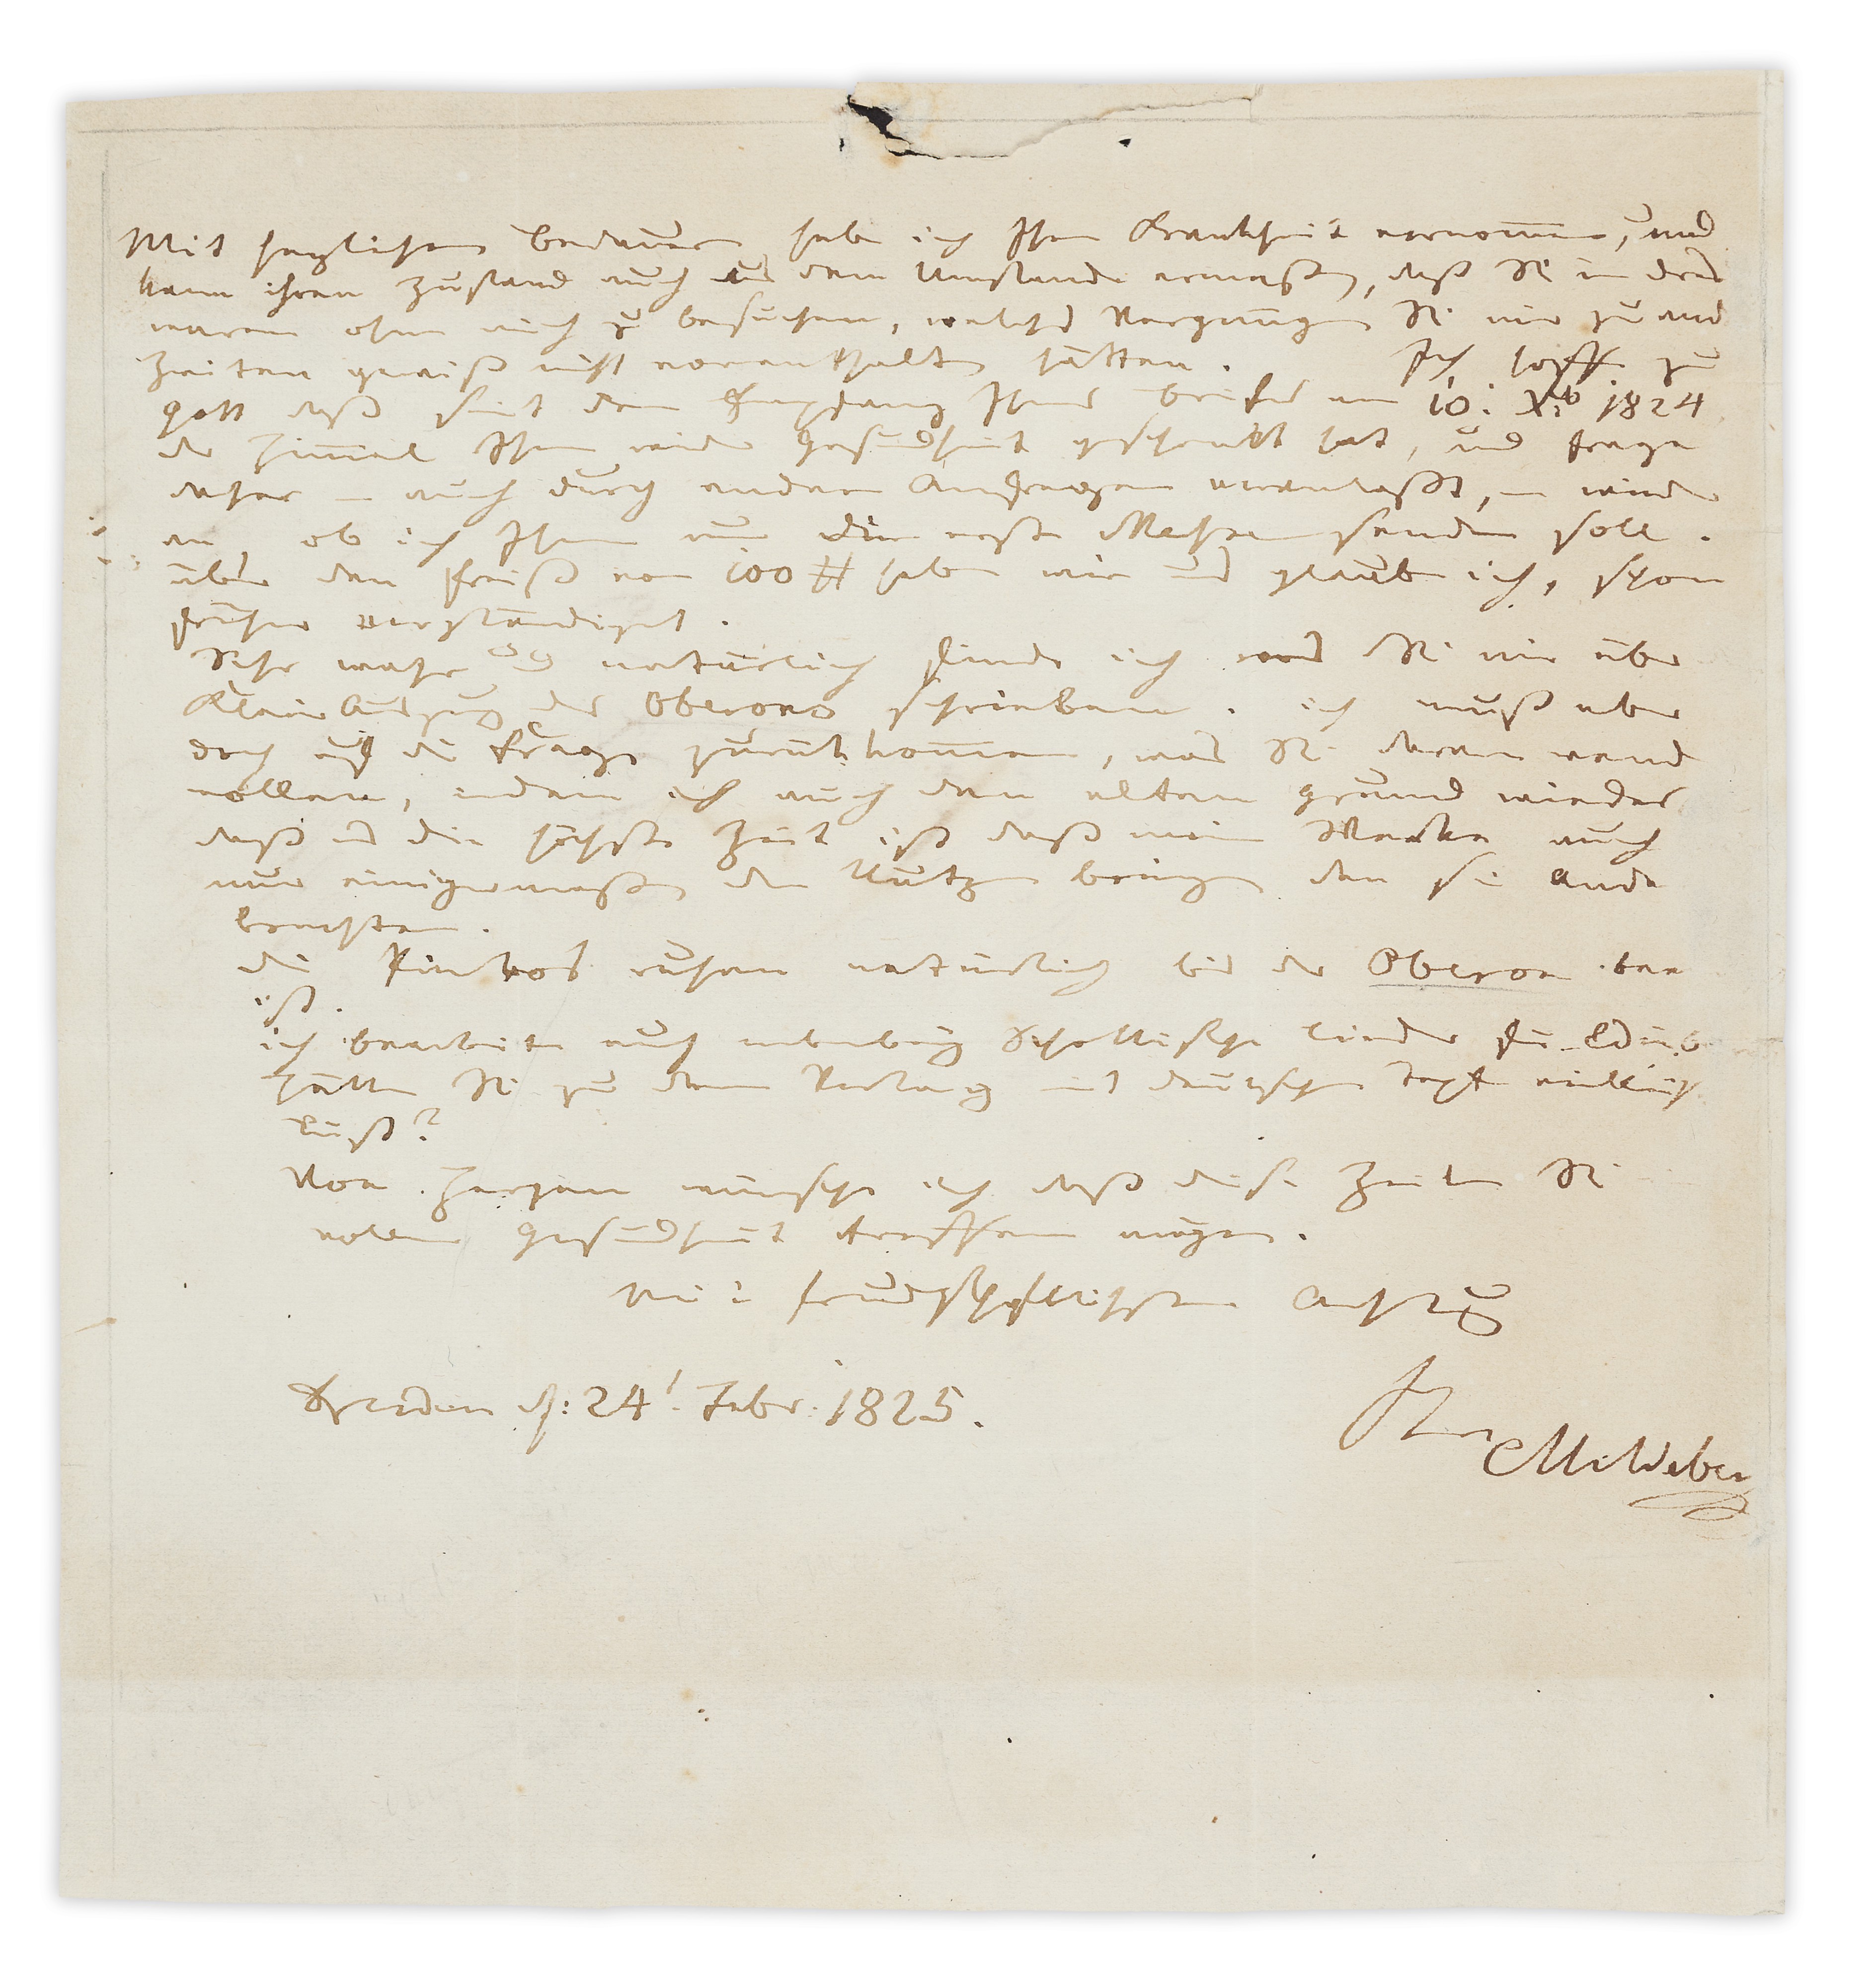 Mit herzlichem Bedauern habe ich Ihre Krankheit vernommen, und
kann ihren Zustand auch aus dem Umstande ermeßen, daß Sie in Dresd
waren ohne mich zu besuchen, welches Vergnügen Sie mir zu and
Zeiten gewiß nicht vorenthalten hätten. Ich hoffe zu
Gott daß seit dem Empfang Ihres briefes am 10: Xb 1824
der Himmel Ihnen wieder Gesundheit geschenkt hat, und frage
daher – auch durch andere Anfragen veranlaßt, – wieder
an, ob ich Ihnen nun die erste Messe senden soll.
über den Preiß von 100 # haben wir uns glaube ich, schon
früher verständiget.
Sehr wahr und natürlich finde ich was Sie mir über
KlavierAuszug des Oberons schrieben. ich muß aber
doch auf die Frage zurükkommen, was Sie daran wend
wollen, indem ich auch den alten Grund wieder
daß es die höchste Zeit ist daß meine Werke auch
mir einigermaßen den Nutzen bringen den sie Ande
brachten.
die Pintos ruhen natürlich bis der Oberon been
ist.
ich bearbeite auch nebenbey Schottische Lieder für Edinb
hätten Sie zu dem Verlag mit deutschem Text vielleich
Lust?
Von Herzen wünsche ich daß diese Zeilen Sie
voller Gesundheit treffen mögen.
Mit freundschaftlichster Achtung
Dresden d: 24t Febr: 1825.
Ihr
CMvWeber